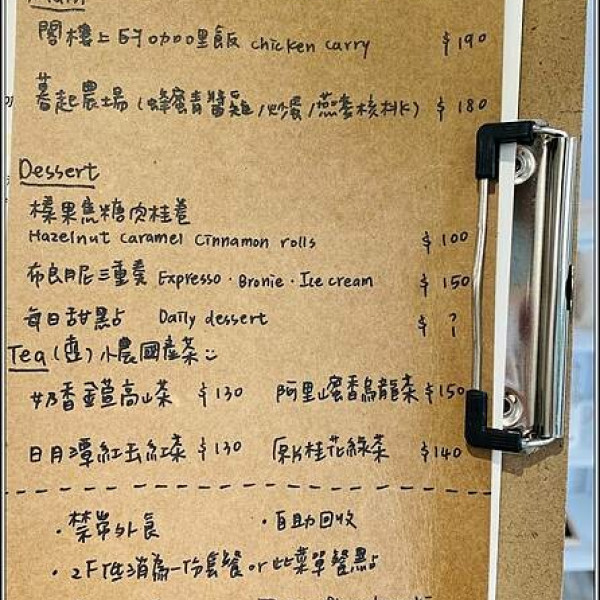 Main
閣樓上的咖哩飯 chicken carry $190
暮起農場(蜂蜜青醬雞/炒蛋/燕麥核桃) $180
Dessert
榛果焦糖肉桂卷
Hazelnut caramel cinnamon rolls $100
布朗尼三重奏 Expresso·Bronie·Ice cream $150
每日甜點 Daily dessert $ ?
Tea(壺)小農國產茶
奶香金萱高山茶 $130 阿里山蜜香烏龍茶 $150
日月潭紅玉紅茶 $130 原片桂花綠茶 $140
·禁帶外食 ·自助回收
·2F低消為一份套餐or此菜單餐點